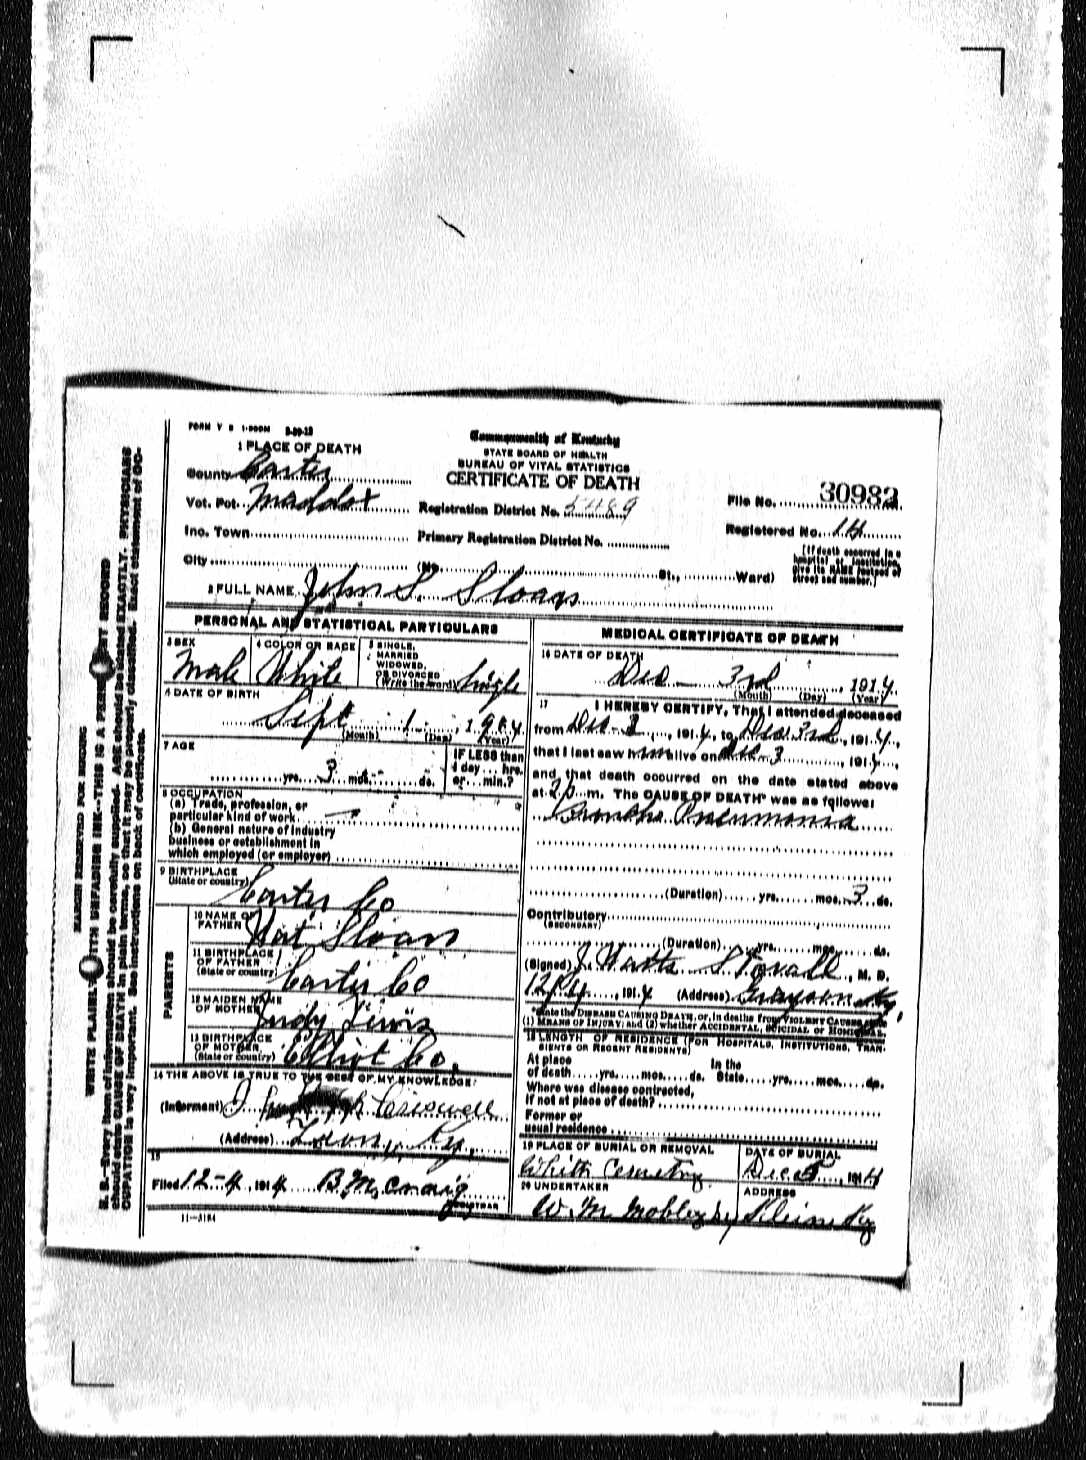 FORM V S 1-500M 8-20-13
1 PLACE OF DEATH
Commonwealth of Kentucky
STATE BOARD OF HEALTH
BUREAU OF VITAL STATISTICS
CERTIFICATE OF DEATH
County Carter
Vot. Pct. Maddox
Registration District No. 5489
File No. 30982
Inc. Town
Primary Registration District No.
Registered No. 14
City (No. St., Ward)
[If death occurred in a hospital or institution, give its NAME instead of street and number.]
2 FULL NAME John S. Sloan
PERSONAL AND STATISTICAL PARTICULARS
3 SEX Male
4 COLOR OR RACE White
5 SINGLE, MARRIED WIDOWED, OR DIVORCED (Write the word) Single
6 DATE OF BIRTH
Sept 1, 1914
(Month) (Day) (Year)
7 AGE
yrs. 3 mos. ds.
IF LESS than 1 day ... hrs. or ... min.?
8 OCCUPATION
(a) Trade, profession, or
particular kind of work
(b) General nature of industry
business or establishment in
which employed (or employer)
9 BIRTHPLACE
(State or country) Carter Co
PARENTS
10 NAME OF FATHER Nat Sloan
11 BIRTHPLACE OF FATHER (State or country) Carter Co
12 MAIDEN NAME OF MOTHER Judy Lewis
13 BIRTHPLACE OF MOTHER (State or country) Elliot Co.
14 THE ABOVE IS TRUE TO THE BEST OF MY KNOWLEDGE
(Informant) Creswell
(Address) Leon, Ky.
15
Filed 12-4, 1914 B. M. Craig
REGISTRAR
11-3184
MEDICAL CERTIFICATE OF DEATH
16 DATE OF DEATH
Dec 3rd, 1914
(Month) (Day) (Year)
17 I HEREBY CERTIFY, That I attended deceased
from Dec 3, 1914, to Dec 3rd, 1914,
that I last saw him alive on Dec 3, 1914,
and that death occurred on the date stated above
at 2 p. m. The CAUSE OF DEATH* was as follows:
Broncho Pneumonia
(Duration) yrs. mos. 3 ds.
Contributory
(SECONDARY)
(Duration) yrs. mos. ds.
(Signed) J. Watts Stovall, M. D.
12/4, 1914 (Address) Grayson Ky,
*State the DISEASE CAUSING DEATH, or, in deaths from VIOLENT CAUSES state
(1) MEANS OF INJURY; and (2) whether ACCIDENTAL, SUICIDAL or HOMICIDAL.
18 LENGTH OF RESIDENCE (FOR HOSPITALS, INSTITUTIONS, TRANSIENTS OR RECENT RESIDENTS)
At place of death yrs. mos. ds. In the State yrs. mos. ds.
Where was disease contracted,
if not at place of death?
Former or
usual residence
19 PLACE OF BURIAL OR REMOVAL
Whitt Cemetry
DATE OF BURIAL
Dec 5, 1914
20 UNDERTAKER
W. M. Mobley
ADDRESS
Ky
MARGIN RESERVED FOR BINDING
WRITE PLAINLY WITH UNFADING INK--THIS IS A PERMANENT RECORD
N. B.--Every item of information should be carefully supplied. AGE should be stated EXACTLY. PHYSICIANS
should state CAUSE OF DEATH in plain terms, so that it may be properly classified. Exact statement of OC-
CUPATION is very important. See instructions on back of certificate.